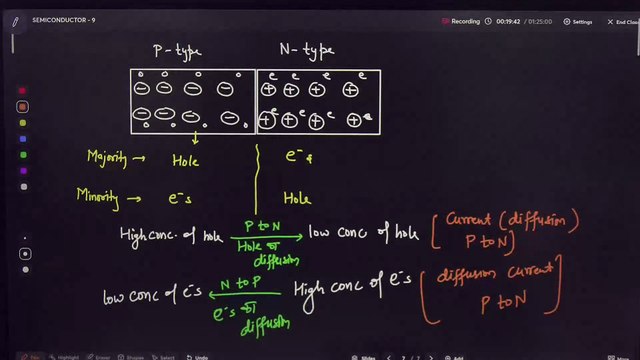 SEMICONDUCTOR - 9
Recording
00:19:42 / 01:25:00
Settings
End Class
P-type N-type
o o o o e e e e
− − − − + + + +
− − − − + e + e + e + e
o o o o
Majority → Hole e⁻s
Minority → e⁻s Hole
High conc. of hole P to N low conc of hole [Current (diffusion)
Hole diffusion P to N]
low conc of e⁻s N to P High conc of e⁻s [diffusion current
e⁻s diffusion P to N]
Pen Highlighter Eraser Shapes Select Undo Slides 7 / 7